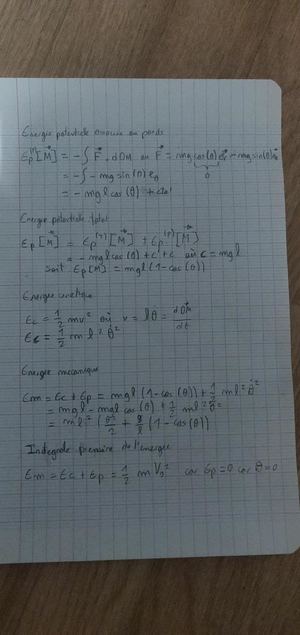 Energie potentielle associée au poids
Ep^(P)[M] = -∫ F⃗ . dOM où F⃗ = mg cos(θ) e⃗r - mg sin(θ) e⃗θ
0
= -∫ - mg sin(θ) eθ
= - mg l cos(θ) + cte
Energie potentielle totale
Ep[M] = Ep^(T)[M] + Ep^(P)[M]
= - mg l cos(θ) + c' + c où c = mg l
soit Ep[M] = mg l (1 - cos(θ))
Energie cinétique
Ec = 1/2 mv² où v = lθ̇ = dOM/dt
Ec = 1/2 m l² θ̇²
Energie mécanique
Em = Ec + Ep = mg l (1 - cos(θ)) + 1/2 m l² θ̇²
= mg l - mg l cos(θ) + 1/2 m l² θ̇²
= m l² (θ̇²/2 + g/l (1 - cos(θ))
Intégrale première de l'énergie
Em = Ec + Ep = 1/2 m V₀² car Ep = 0 car θ = 0